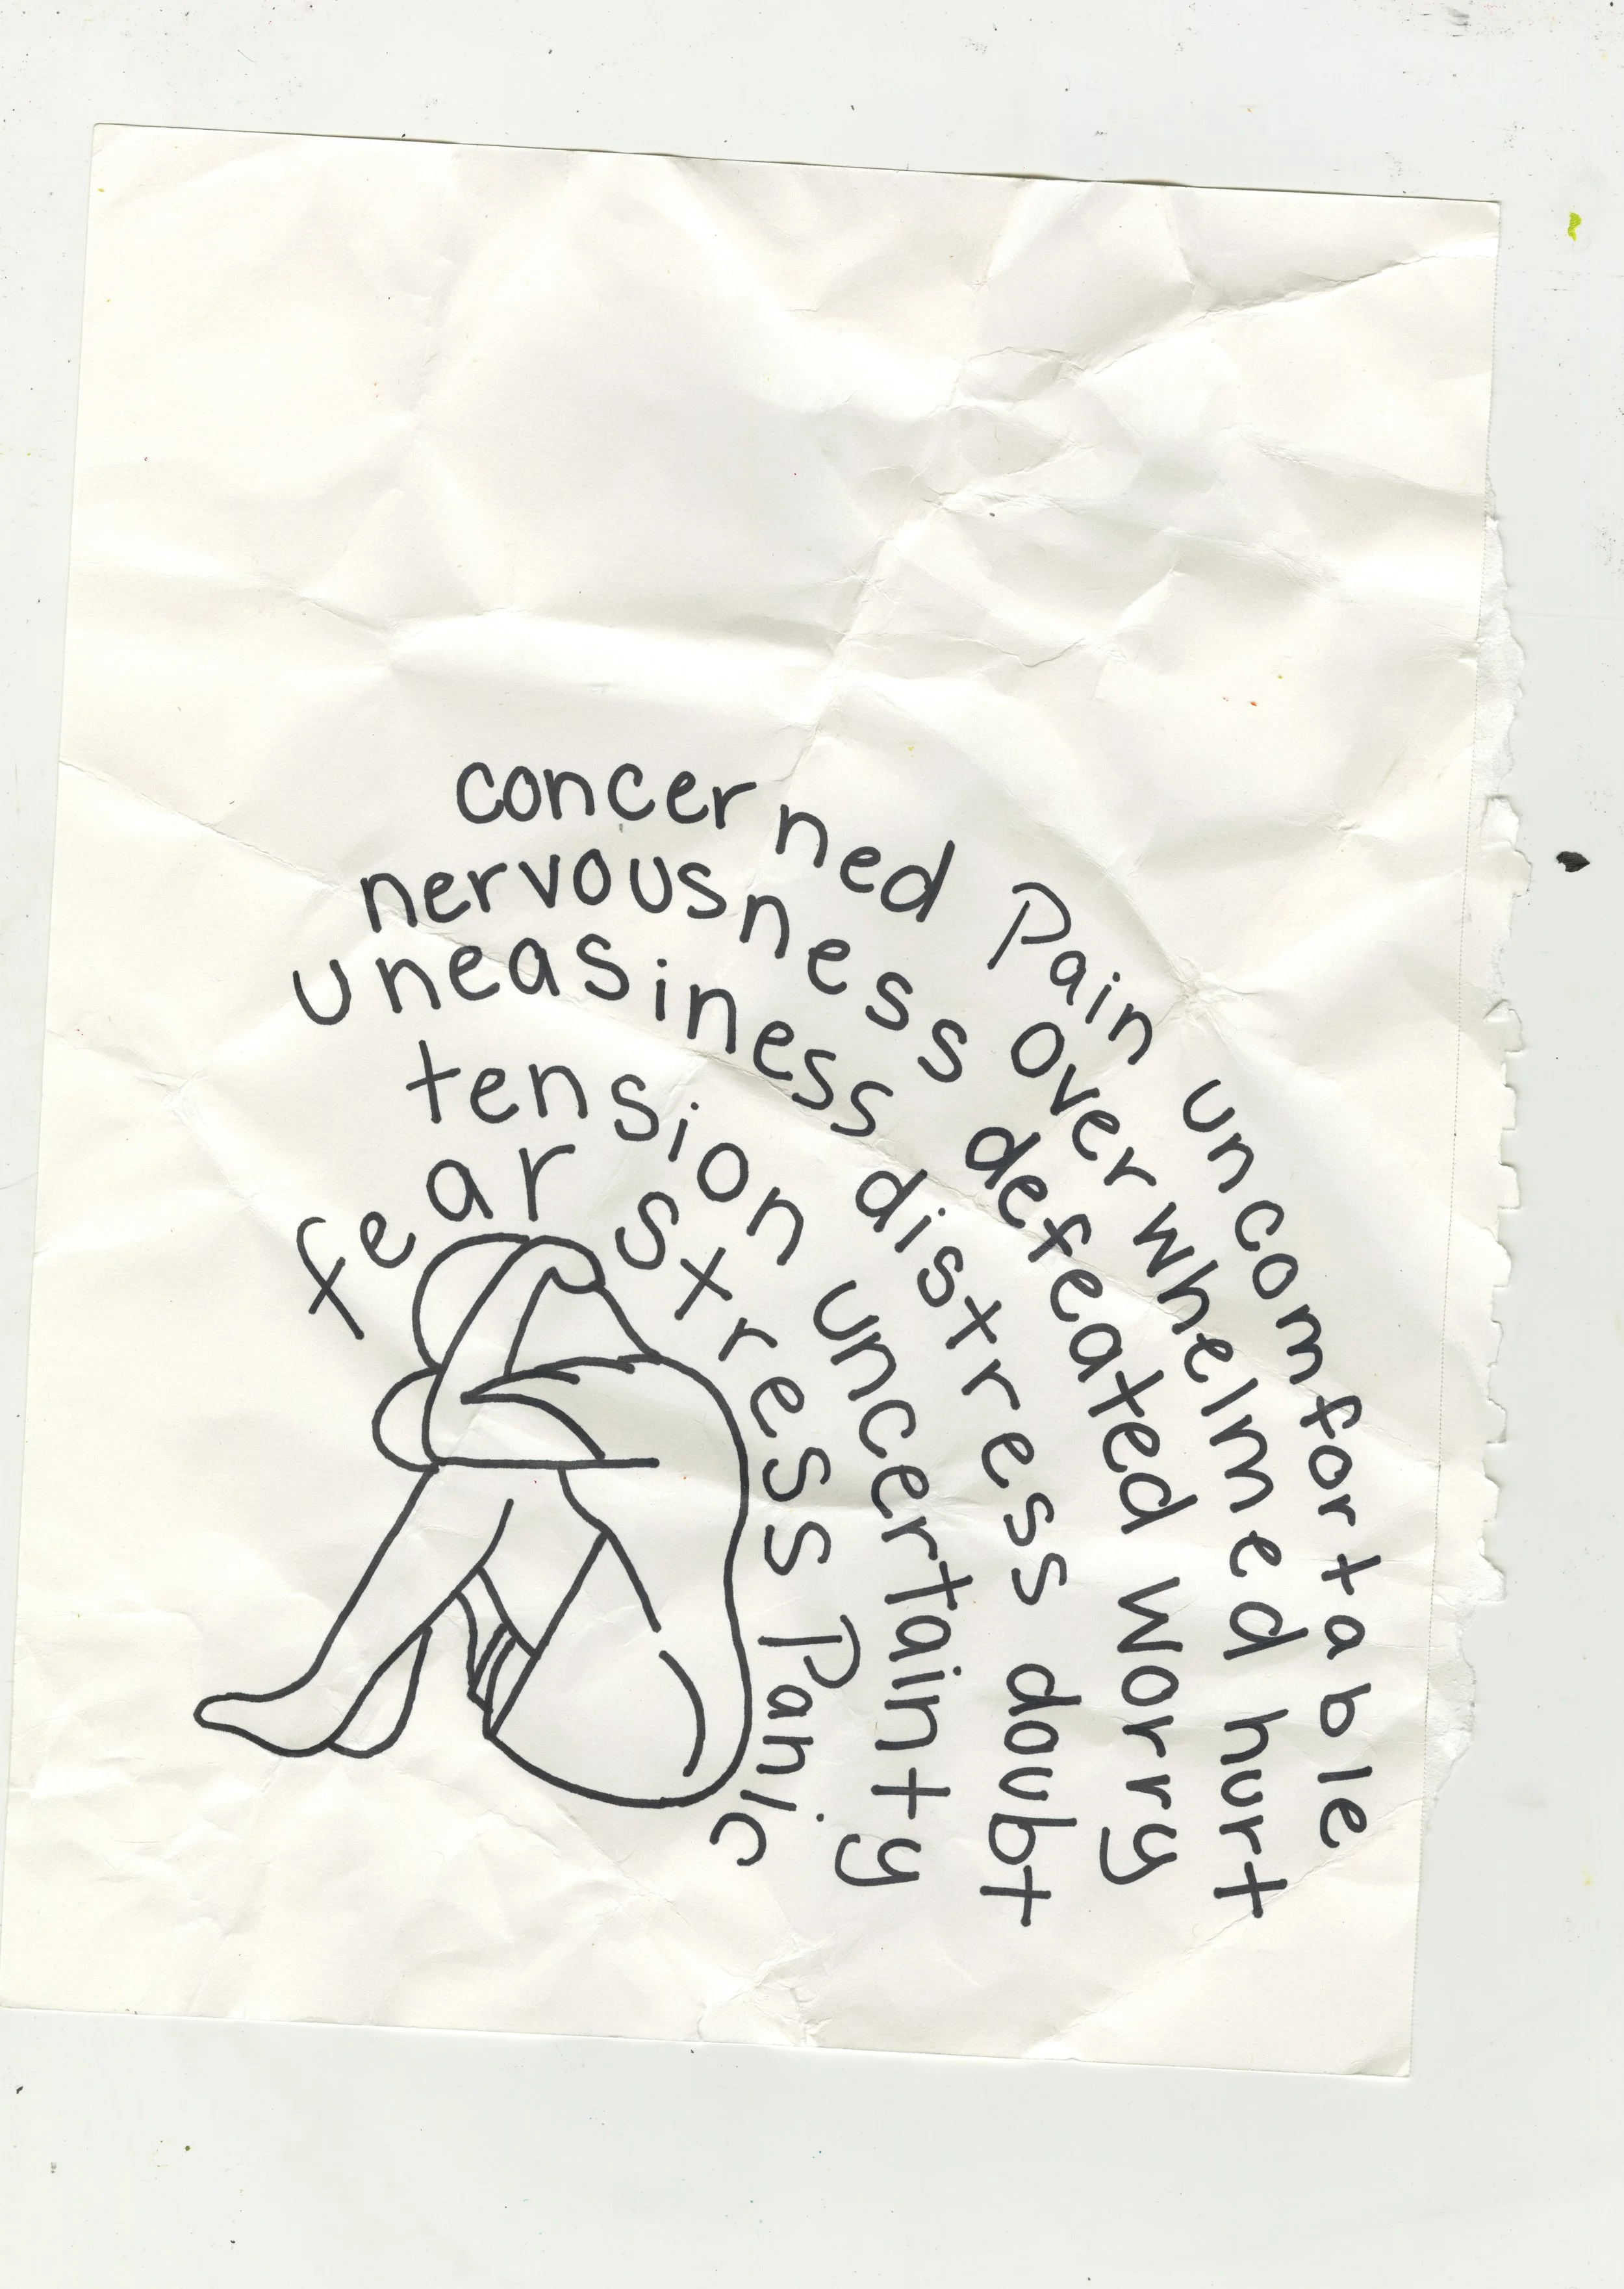 concerned Pain uncomfortable
nervousness Overwhelmed hurt
defeated worry
uneasiness distress doubt
tension uncertainty
fear stress Panic